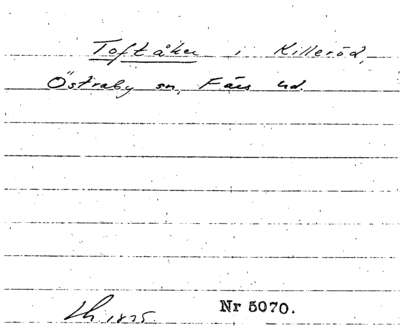 Toftåker i Killeröd,
Östraby sn, Färs hd.
Lh 1825 Nr 5070.